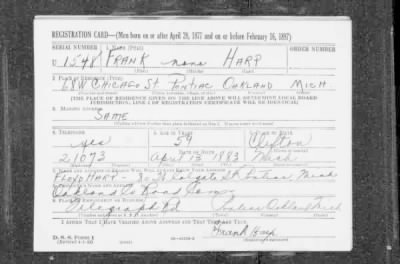 REGISTRATION CARD—(Men born on or after April 28, 1877 and on or before February 16, 1897)
SERIAL NUMBER 1. NAME (Print) ORDER NUMBER
U 1548 FRANK none HARP
2. PLACE OF RESIDENCE (Print)
68 W CHICAGO ST PONTIAC OAKLAND MICH
[THE PLACE OF RESIDENCE GIVEN ON THE LINE ABOVE WILL DETERMINE LOCAL BOARD
JURISDICTION; LINE 2 OF REGISTRATION CERTIFICATE WILL BE IDENTICAL]
3. MAILING ADDRESS
SAME
4. TELEPHONE 5. AGE IN YEARS 6. PLACE OF BIRTH
yes 59 Clifton
DATE OF BIRTH
21073 April 13 1883 Mich
7. NAME AND ADDRESS OF PERSON WHO WILL ALWAYS KNOW YOUR ADDRESS
FLOYD HARP Pontiac Mich
8. EMPLOYER'S NAME AND ADDRESS
Oakland Co Road
9. PLACE OF EMPLOYMENT OR BUSINESS
Telegraph Rd Pontiac Oakland Mich
I AFFIRM THAT I HAVE VERIFIED ABOVE ANSWERS AND THAT THEY ARE TRUE.
D. S. S. Form 1 Frank Harp